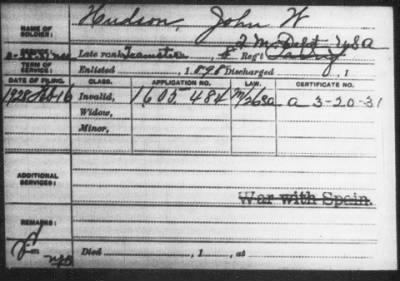 NAME OF SOLDIER: Hudson, John W
2 M. Dept USA
TERM OF SERVICE: Late rank Teamster, Reg't
Enlisted , 1898 Discharged , 1
DATE OF FILING. CLASS. APPLICATION NO. LAW. CERTIFICATE NO.
1928 Feb 16 Invalid, 1605 484 a 3-20-31
Widow,
Minor,
ADDITIONAL SERVICES:
War with Spain.
REMARKS:
Died , 1 , at